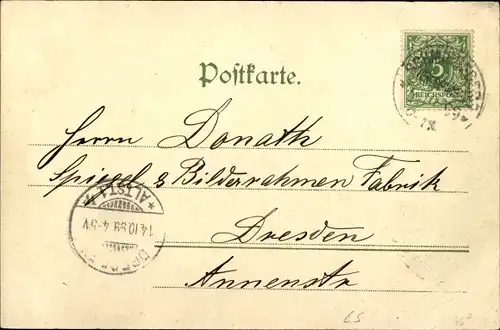 Postkarte.
5
REICHSPOST
Herrn Donath
Spiegel & Bilderrahmen Fabrik
Dresden
Annenstr
ALTST.
14.10.99.4-5V
LS